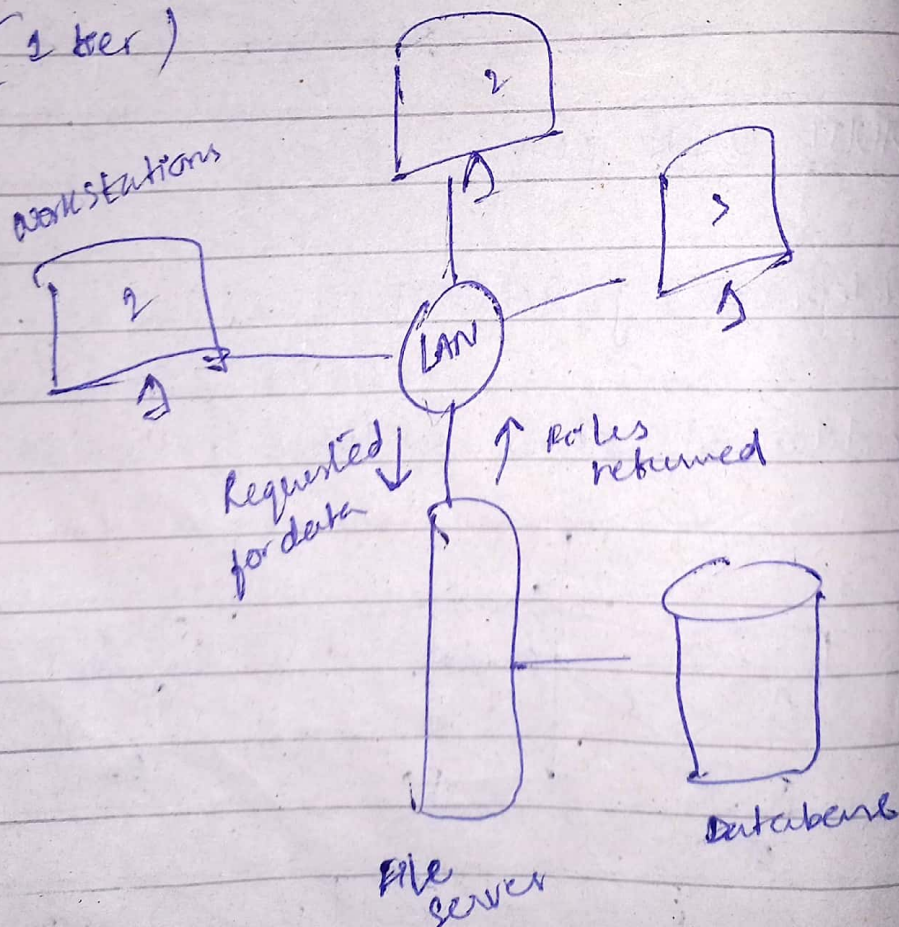 (1 tier)
2
workstations
2
LAN
Requested
for data
Files
returned
Database
File
server